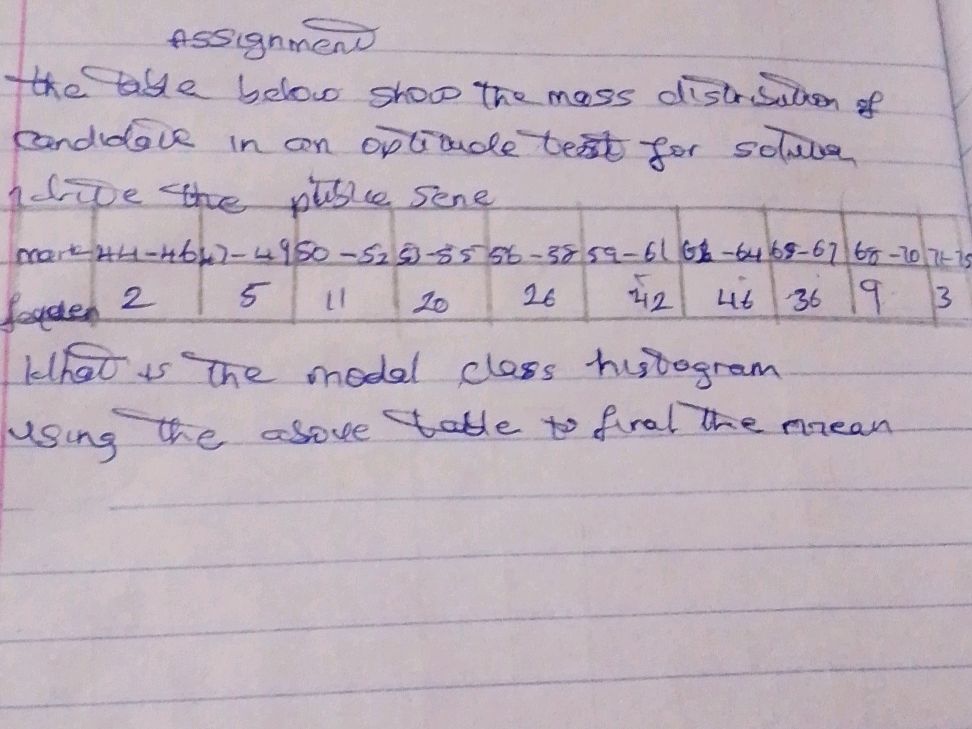 Assignment
the table below show the mass distribution of
Candidate in an optitude test for
the public
mark 44-46 47-49 50-52 53-55 56-58 59-61 62-64 65-67 68-70
2 5 11 20 26 42 46 36 9 3
What is the modal class histogram
using the above table to final the mean